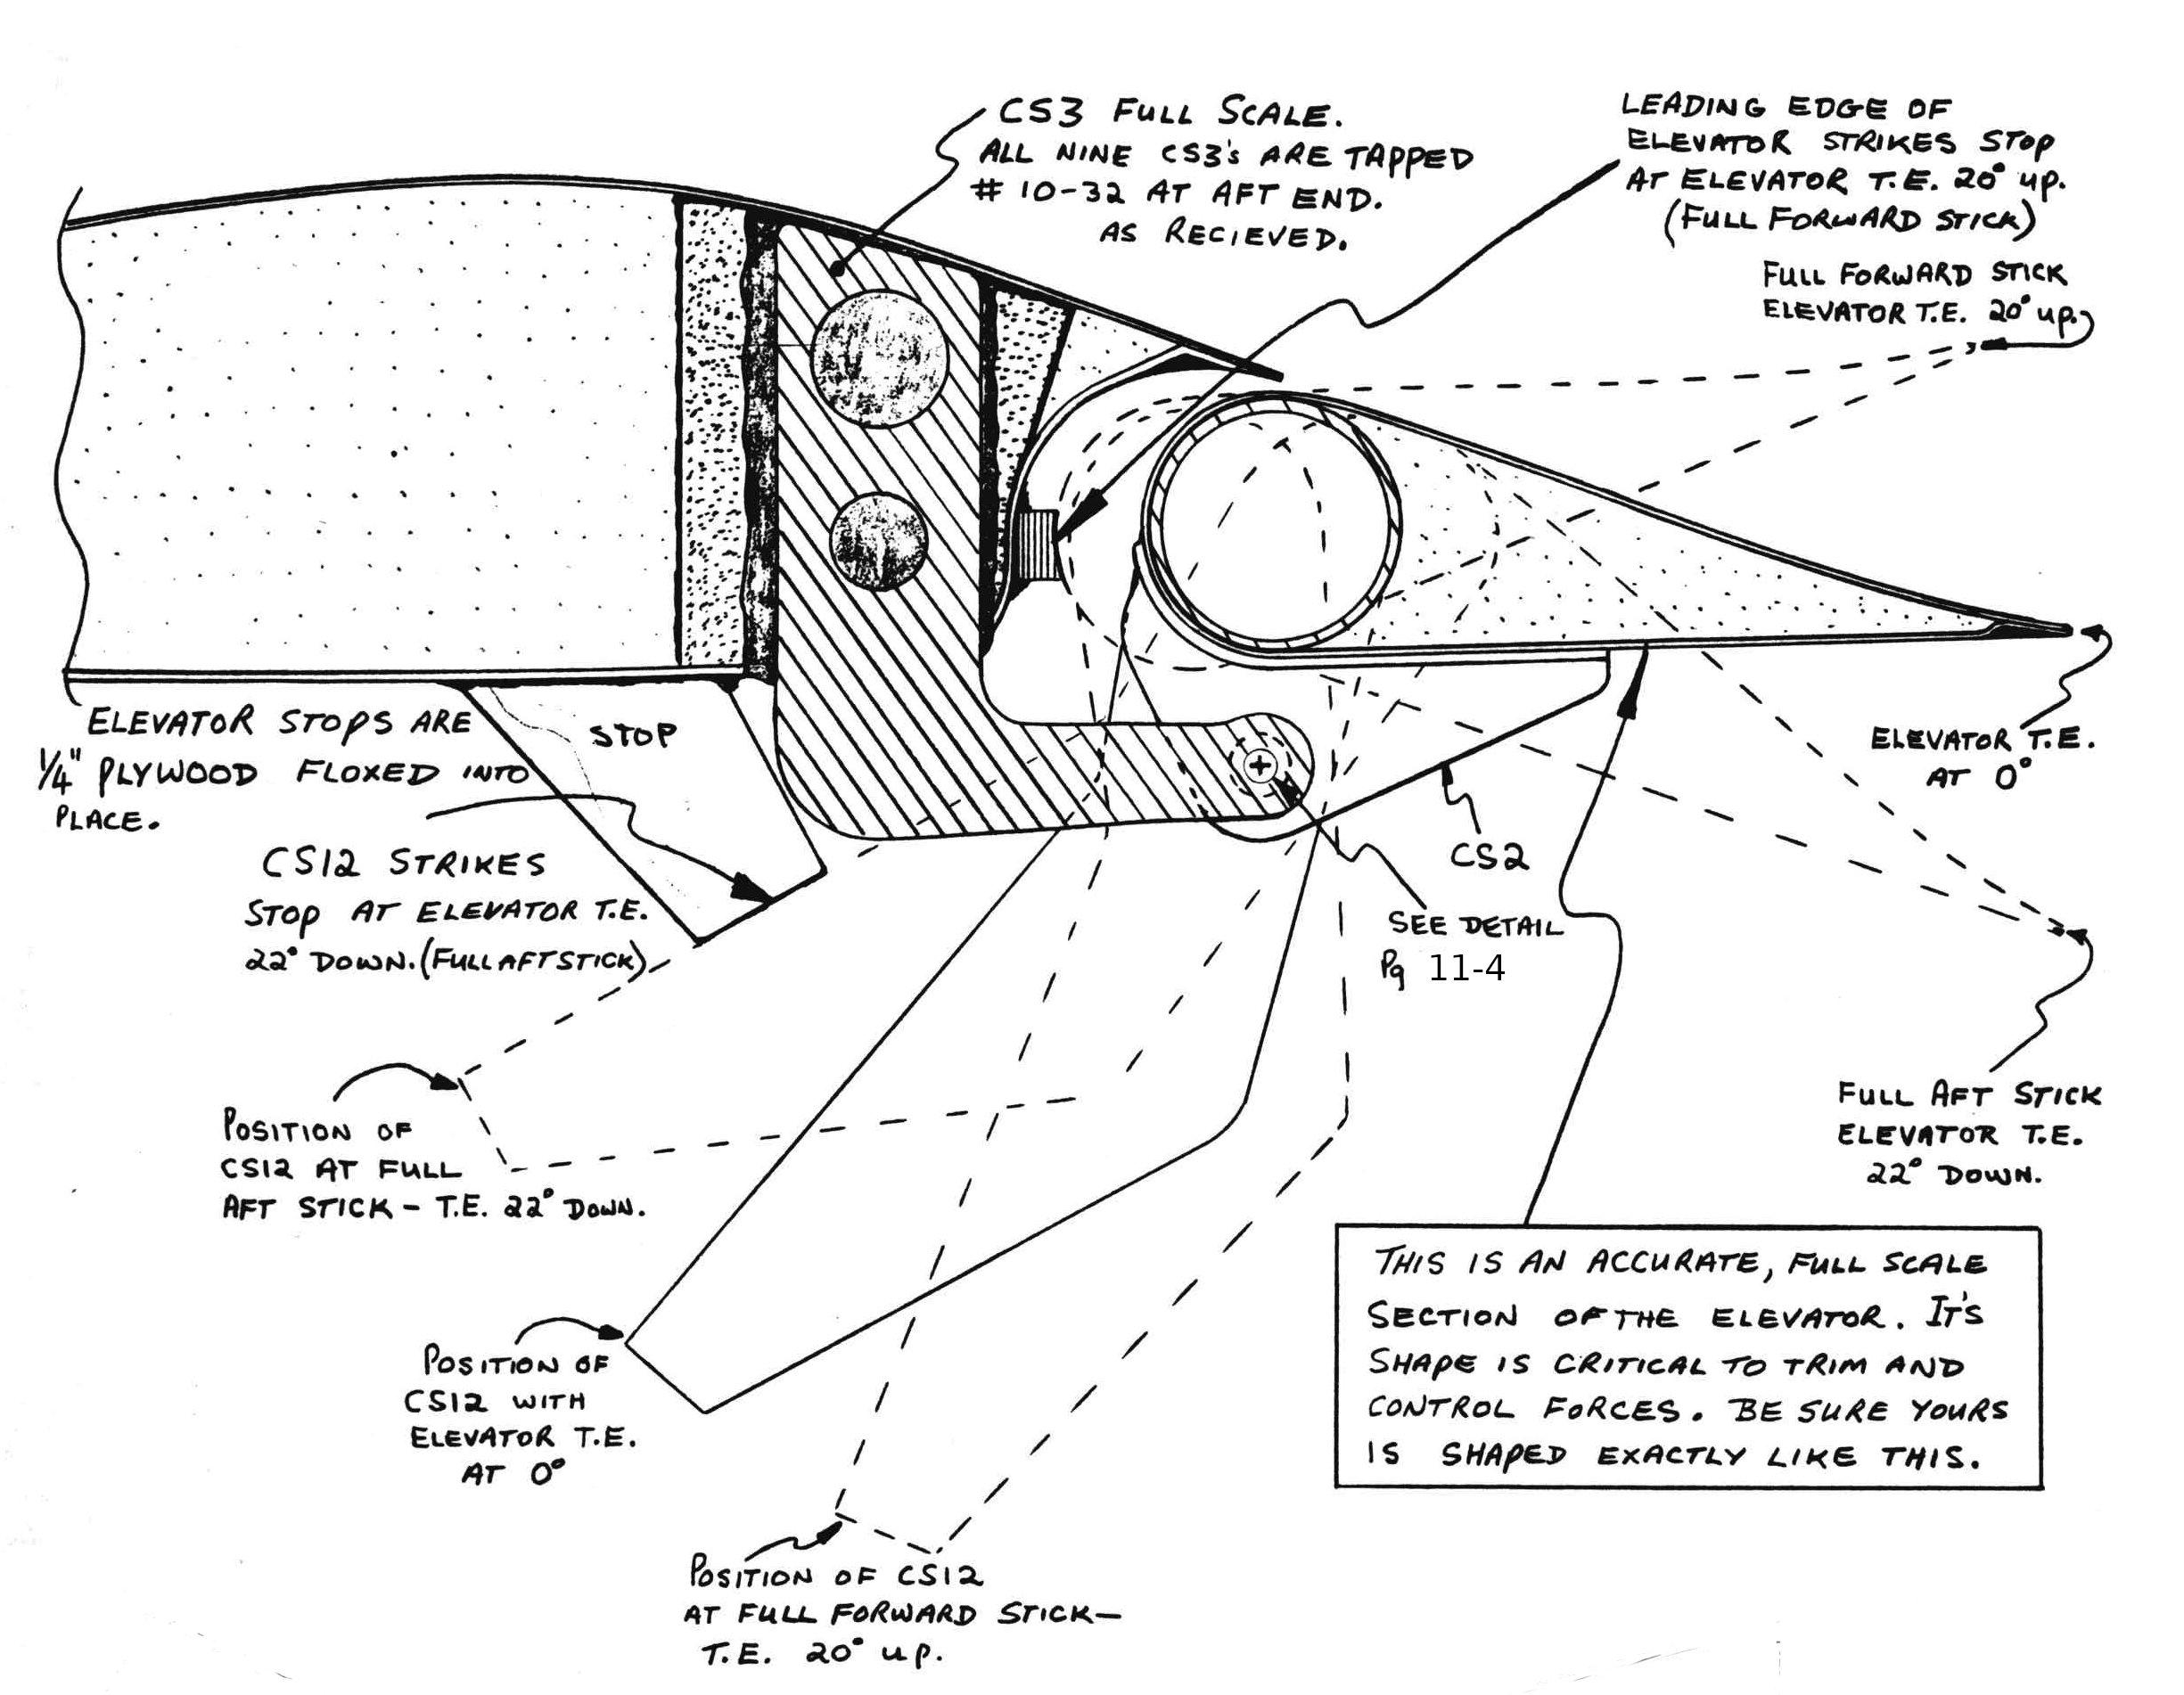 CS3 FULL SCALE.
ALL NINE CS3's ARE TAPPED
# 10-32 AT AFT END.
AS RECIEVED.
LEADING EDGE OF
ELEVATOR STRIKES STOP
AT ELEVATOR T.E. 20° UP.
(FULL FORWARD STICK)
FULL FORWARD STICK
ELEVATOR T.E. 20° UP.
ELEVATOR STOPS ARE
1/4" PLYWOOD FLOXED INTO
PLACE.
STOP
ELEVATOR T.E.
AT 0°
CS12 STRIKES
STOP AT ELEVATOR T.E.
22° DOWN. (FULL AFT STICK)
CS2
SEE DETAIL
Pg 11-4
POSITION OF
CS12 AT FULL
AFT STICK - T.E. 22° DOWN.
FULL AFT STICK
ELEVATOR T.E.
22° DOWN.
THIS IS AN ACCURATE, FULL SCALE
SECTION OF THE ELEVATOR. IT'S
SHAPE IS CRITICAL TO TRIM AND
CONTROL FORCES. BE SURE YOURS
IS SHAPED EXACTLY LIKE THIS.
POSITION OF
CS12 WITH
ELEVATOR T.E.
AT 0°
POSITION OF CS12
AT FULL FORWARD STICK—
T.E. 20° UP.